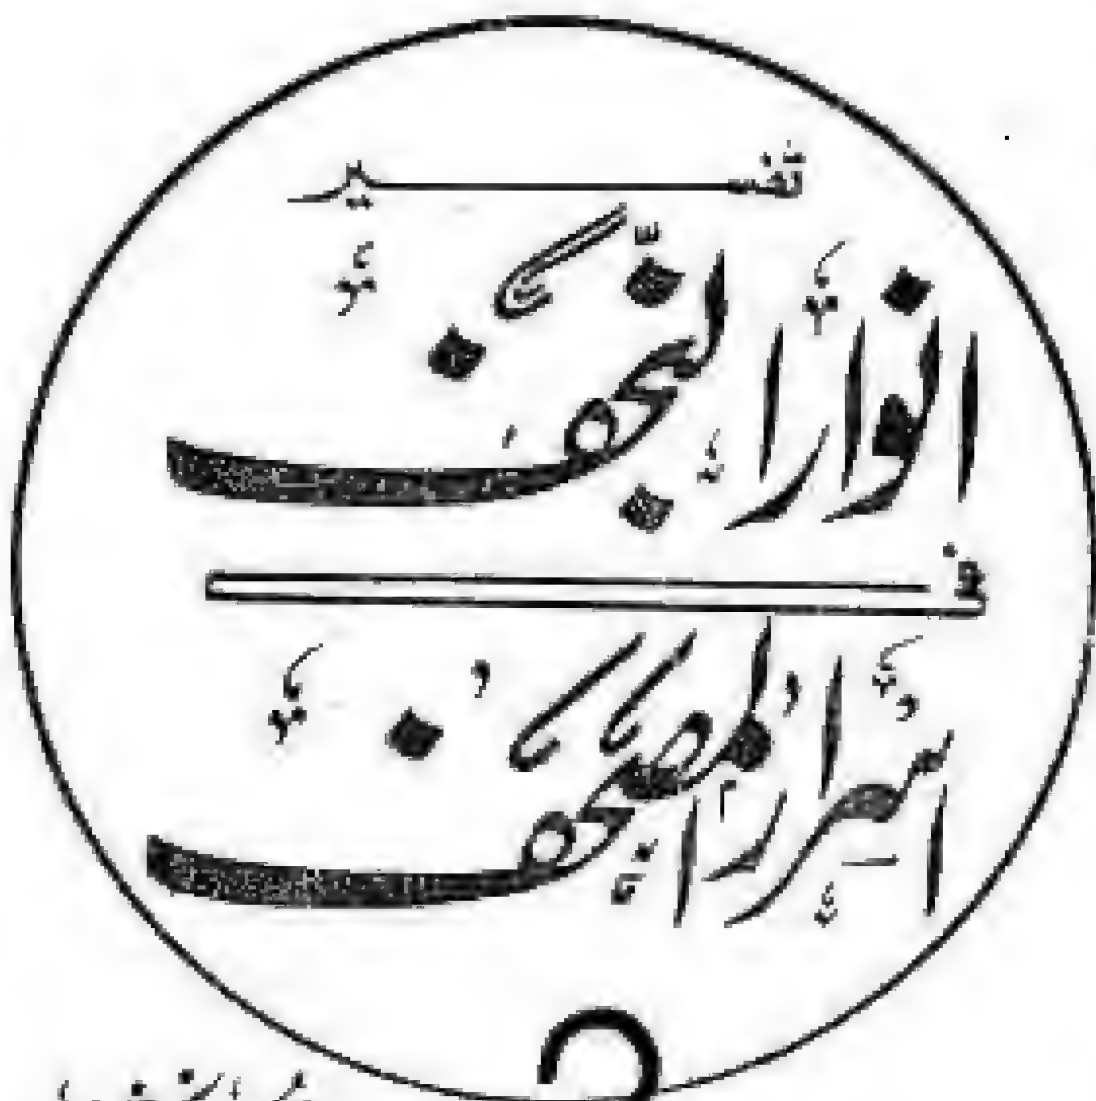 تفسیر
انوار النجف
فی
اسرار المصحف